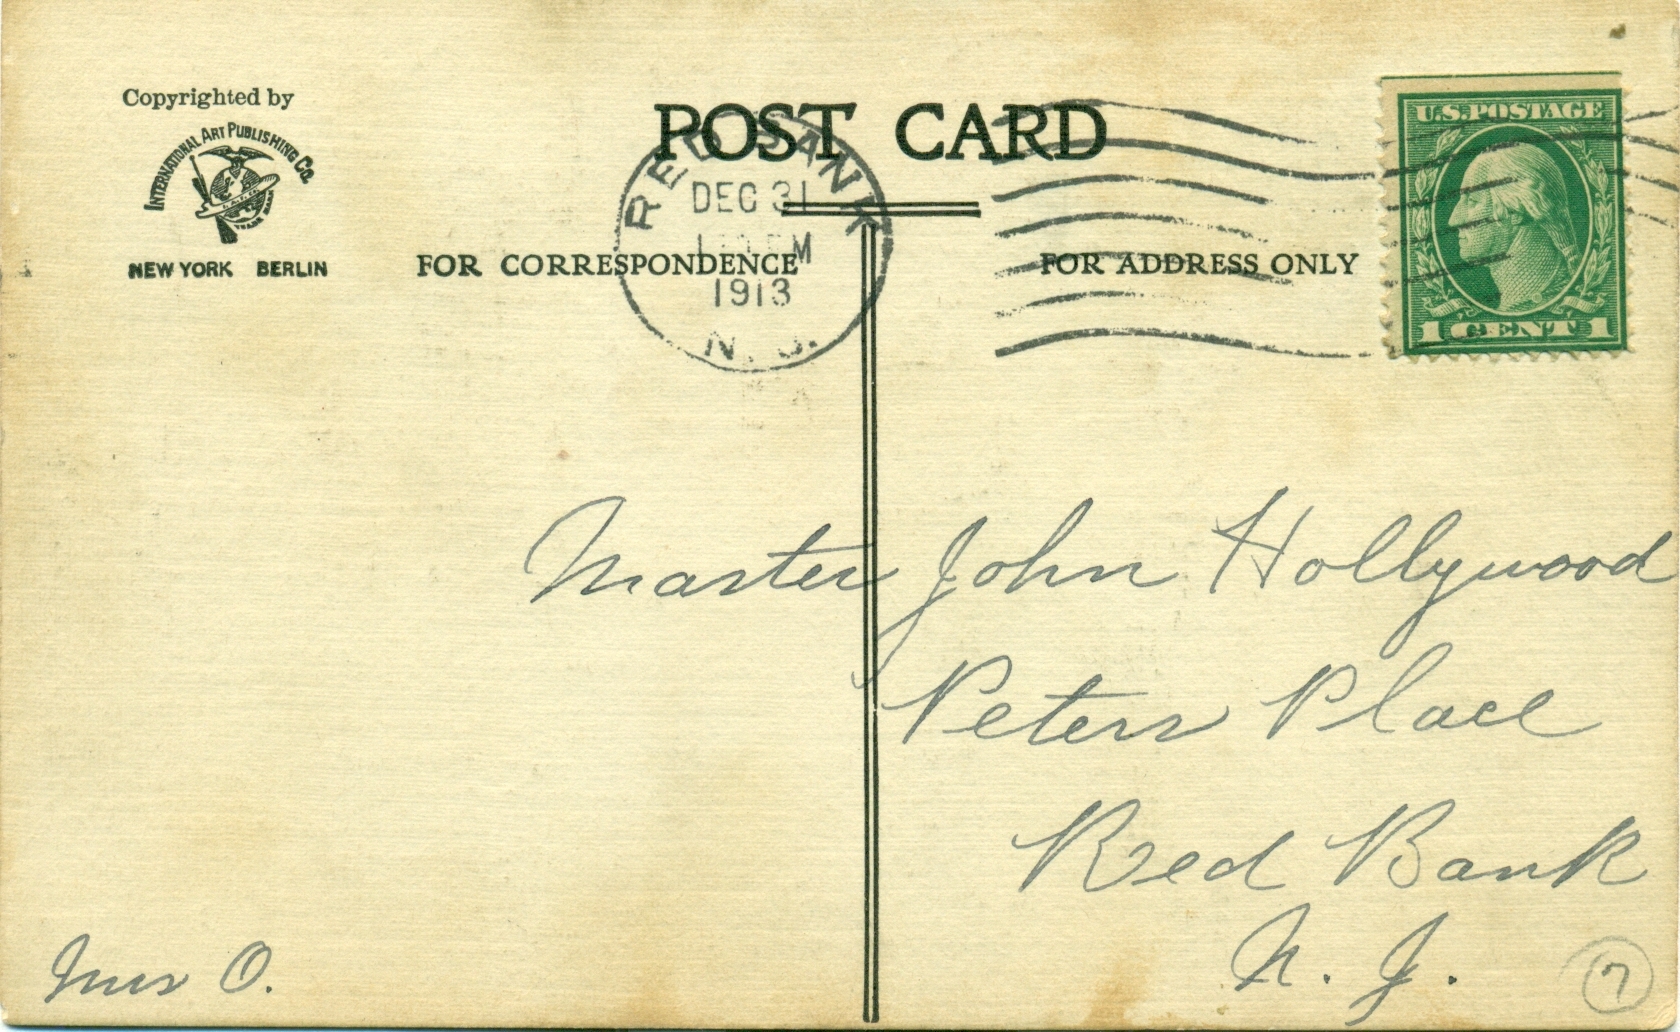 Copyrighted by
INTERNATIONAL ART PUBLISHING Co.
NEW YORK BERLIN
POST CARD
FOR CORRESPONDENCE
FOR ADDRESS ONLY
RED BANK
DEC 31
PM
1913
N. J.
U.S. POSTAGE
1 CENT 1
Master John Hollywood
Peters Place
Red Bank
N. J.
O.
7